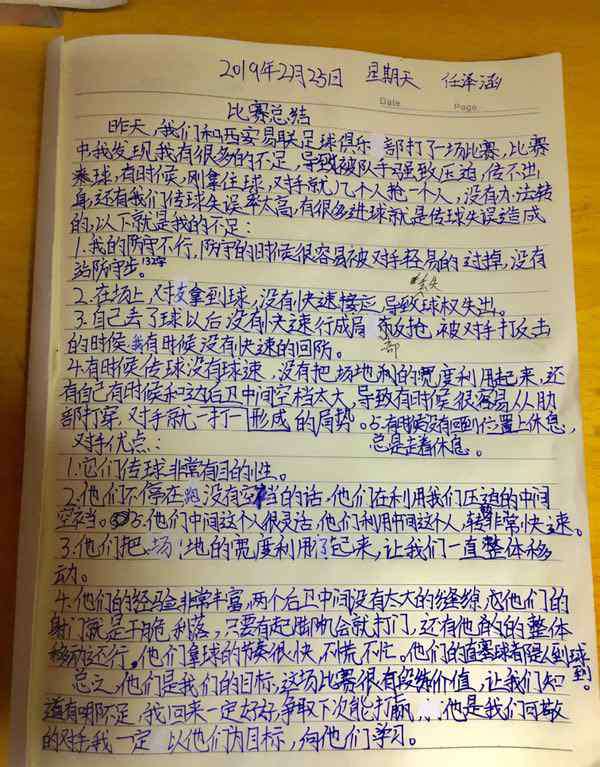 2019年2月25日 星期天 任泽涵
Date Page
比赛总结
昨天,我们和西安易联足球俱乐部打了一场比赛,比赛
中我发现我有很多的不足,导致被队手强致压迫,传不出
来球,有时候,刚拿住球,对手就几个人抢一个人,没有办法转
身,还有我们传球失误率大高,有很多进球就是传球失误造成
的,以下就是我的不足:
1.我的防守不行,防守的时候很容易被对手轻易的过掉,没有
防守步。
2.在场上,对友拿到球,没有快速接应,导致球权失出。
3.自己丢了球以后没有快速行成局部反抢,被对手打反击
的时候,我有时候没有快速的回防。
4.有时候传球没有球速,没有把场地利的宽度利用起来,还
有自己有时候和边右卫中间空档太大,导致有时候很容易从肋
部打穿,对手就一打一形成的局势。5.有时候没有回到位置上休息,
总是走着休息。
对手优点:
1.它们传球非常有目的性。
2.他们不停在跑,没有空档的话,他们在利用我们压迫的中间
空档。5.他们中间这个人很灵活,他们利用中间这个人,转非常快速。
3.他们把场地的宽度利用了起来,让我们一直整体移
动。
4.他们的经验非常丰富,两个后卫中间没有太大的缝隙,他们的
射门就是干脆,利落,只要有起脚机会就打门,还有他们的整体
移动还行。他们拿球的节奏很快,不慌不忙。他们的直塞球有是人到球
到。
总之,他们是我们的目标,这场比赛很有锻炼价值,让我们知
道有哪不足,我回来一定好好,争取下次能打赢,他是我们可敬
的对手,我一定以他们为目标,向他们学习。